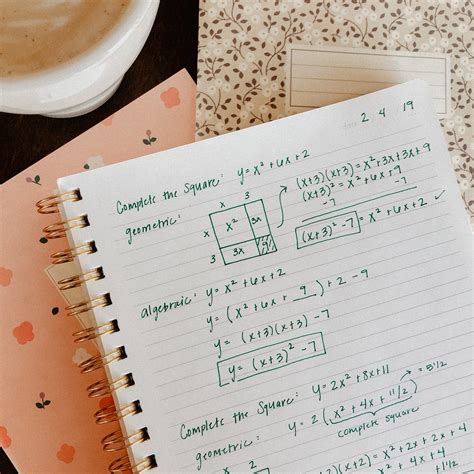 2 4 19
Complete the Square: y = x² + 6x + 2
geometric:
x 3
x x² 3x
3 3x 9
(x+3)(x+3) = x² + 3x + 3x + 9
(x+3)² = x² + 6x + 9
-7 -7
(x+3)² - 7 = x² + 6x + 2 ✓
algebraic: y = x² + 6x + 2
y = (x² + 6x + 9) + 2 - 9
y = (x+3)(x+3) - 7
y = (x+3)² - 7
Complete the Square: y = 2x² + 8x + 11
y = 2(x² + 4x + 11/2) → = 5 1/2
complete square
geometric:
x 2
= x² + 2x + 2x + 4
= x² + 4x + 4